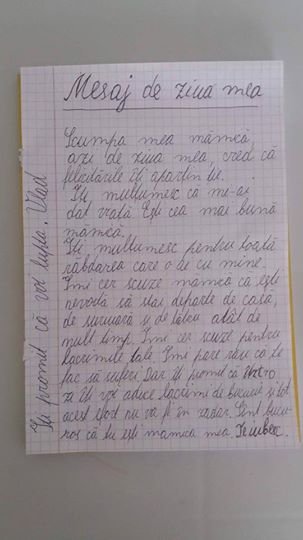 Mesaj de ziua mea
Scumpa mea mămică
azi de ziua mea, cred că
felicitările îți aparțin ție.
Îți mulțumesc că mi-ai
dat viață. Ești cea mai bună
mămică.
Îți mulțumesc pentru toată
răbdarea care o ai cu mine.
Îmi cer scuze mămica că ești
nevoită să stai departe de casă,
de surioară și de tăticu atât de
mult timp. Îmi cer scuze pentru
lacrimile tale. Îmi pare rău că te
fac să suferi. Dar îți promit că într-o
zi îți voi aduce lacrimi de bucurie și tot
acest efort nu va fi în zadar. Sînt bucu-
ros că tu ești mămica mea. Te iubesc.
Îți promit că voi lupta, Vlad